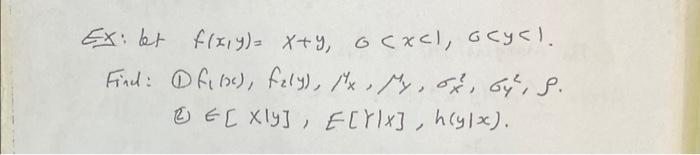 Ex: let f(x,y)= x+y, 0<x<1, 0<y<1.
Find: ① f₁(x), f₂(y), μx, μy, σx², σy², ρ.
② E[X|y], E[Y|x], h(y|x).